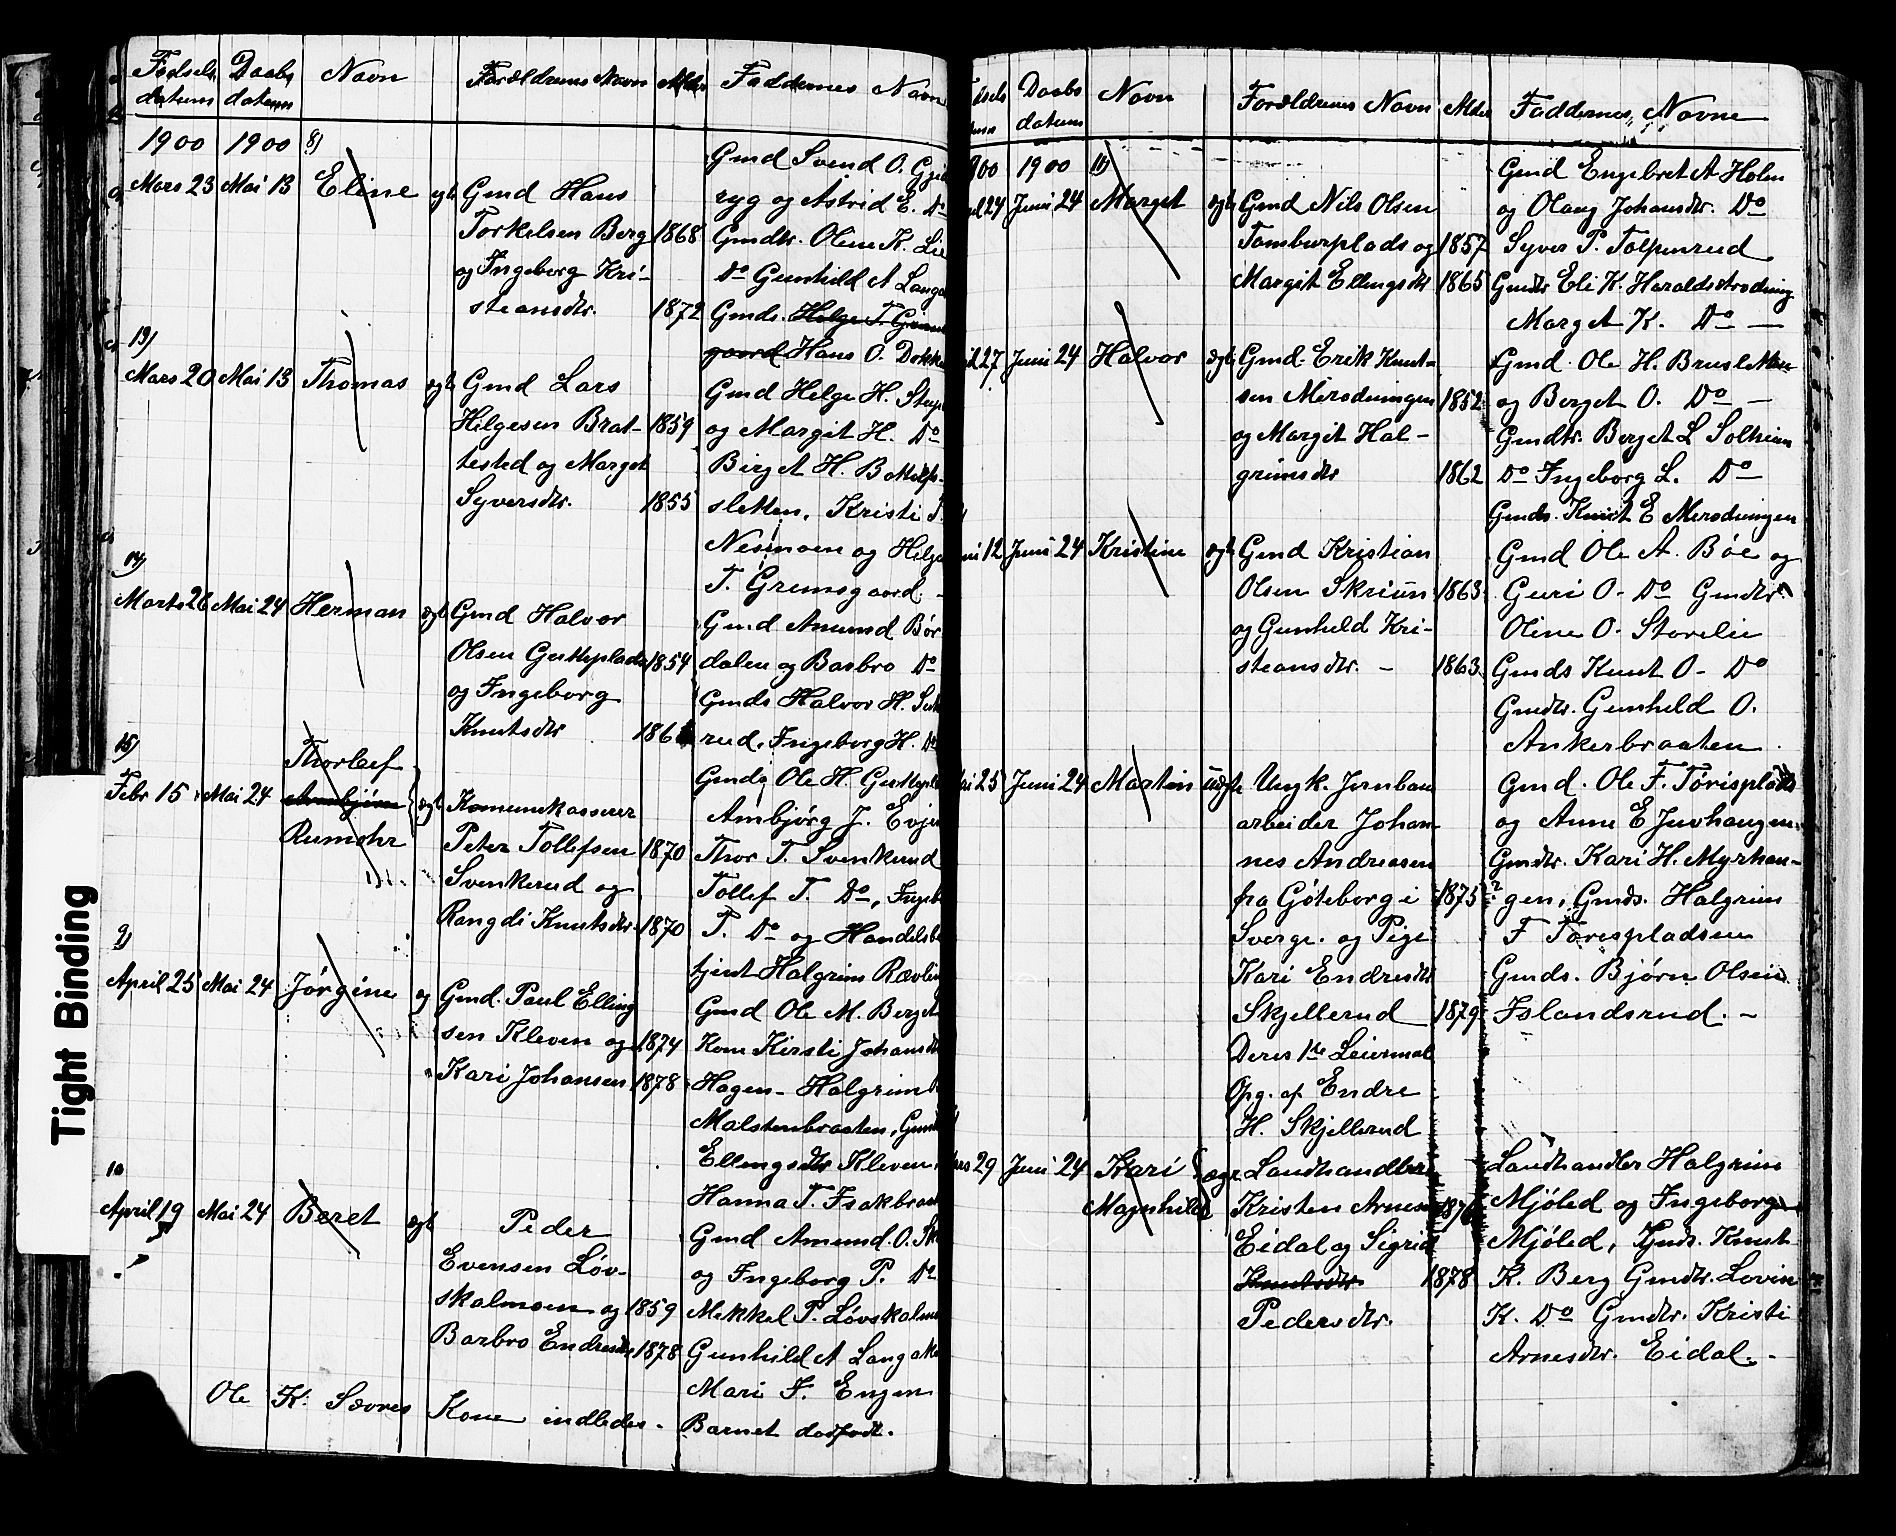 Fødsels
datum
Daabs
datum
Navn
Forældrenes Navn
Alder
Faddernes Navn
1900
1900
8)
Mars 23
Mai 13
Eline
ægt
Gmd Hans
Torkelsen Berg
1868
og Ingeborg Kri-
steansdtr.
1872
Gmd Svend O.
ryg og Astrid E. Do
Gmdtr. Oline K. Lie
Do Gunhild A
Gmds. Helge T.
gaard Hans O.
13)
Mars 20
Mai 13
Thomas
ægt
Gmd Lars
Helgesen Brat-
1859
tested og Marget
Syversdtr.
1855
Gmd Helge H.
og Margit H. Do
Birget H.
sletten, Kristi
Nesmoen og Helge
T. Gremsgaard. -
14)
Marts 26
Mai 24
Herman
ægt
Gmd Halvor
Olsen
1854
og Ingeborg
Knutsdtr
Gmd Amund Bør
dalen og Barbro Do
Gmds Halvor H.
rud, Ingeborg H. Do
Gmds Ole H.
Ambjørg J.
15)
Febr 15
Mai 24
Thorleif
Rumohr
ægt
Komunekasserer
Peter Tollefsen
1870
Svenkerud og
Rangdi Knutsdtr.
1870
Thor T. Svenkerud
Tollef T. Do, Ingeb
T. Do og Handelsbe
tjent Halgrim
9)
April 25
Mai 24
Jørgine
æg
Gmd. Paul Elling
sen Kleven og
1874
Kari Johansen
1878
Gmd Ole M. Berget
Kone Kirsti Johansdt
Hagen- Halgrim
Malstenbraaten,
Ellingsdtr Kleven
Hanna T.
10
April 19
Mai 24
Beret
ægt
Peder
Evensen Løv-
skalmoen og
1859
Barbro Endresdtr
1878
Gmd Amund. O.
og Ingeborg P. Do
Mekkel P. Løvskalmo
Gunhild A
Mari F. Engen
Ole K. Sævres Kone indledes. Barnet dødfødt.
Daabs
datum
Navn
Forældrenes Navn
Alder
Faddernes Navne
1900
11)
24
Juni 24
Marget
ægt
Gmd Nils Olsen
Tamburplads og
1857
Margit Ellingsdtr
1865
Gmd Engebret A Holm
og Olaug Johansdtr. Do
Syver P. Tolpenrud
Gmdtr Eli K.
Marget K. Do —
27
Juni 24
Halvor
ægt
Gmd. Erik Knut-
sen Merodningen
1852
og Margit Hal-
grimsdtr
1862
Gmd Ole H. Brusletten
og Berget O. Do —
Gmdtr. Berget L Solheim
Do Ingeborg L. Do —
Gmds. Knut E Merodningen
12
Juni 24
Kristine
ægt
Gmd Kristian
Olsen Skriun
1863
og Gunhild Kri-
steansdtr. -
1863
Gmd Ole A. Bøe og
Guri O. Do Gmdtr.
Oline O. Storelie
Gmds Knut O- Do
Gmdtr. Gunhild O.
Ankerbraaten.
25
Juni 24
Martin
uægte
Ungk. Jernban
arbeider Johan
nes Andreasen
fra Göteborg i
1875
Sverge. og Pige
Kari Endresdtr
Skjellerud
1879
Deres 1ste Leiermaal
Opg. af Endre
H. Skjellerud
Gmd. Ole F. Tørisplads
og Anne E Juvhaugen.
Gmdtr. Kari H. Myrhau-
gen, Gmds. Halgrim
F Torispladsen
Gmds. Bjørn Olsen
Islandsrud. -
29
Juni 24
Kari
Magnhild
ægt
Landhandler
Kristen Arnesen
Eidal og Sigrid
Knutsdtr
1878
Pedersdtr.
Landhandler Halgrim
Mjøled og Ingeborg
Mjøled, Gmds. Knut
K. Berg Gmdtr. Lovin
K. Do Gmdtr. Kristi
Arnesdtr. Eidal. -
Tight Binding